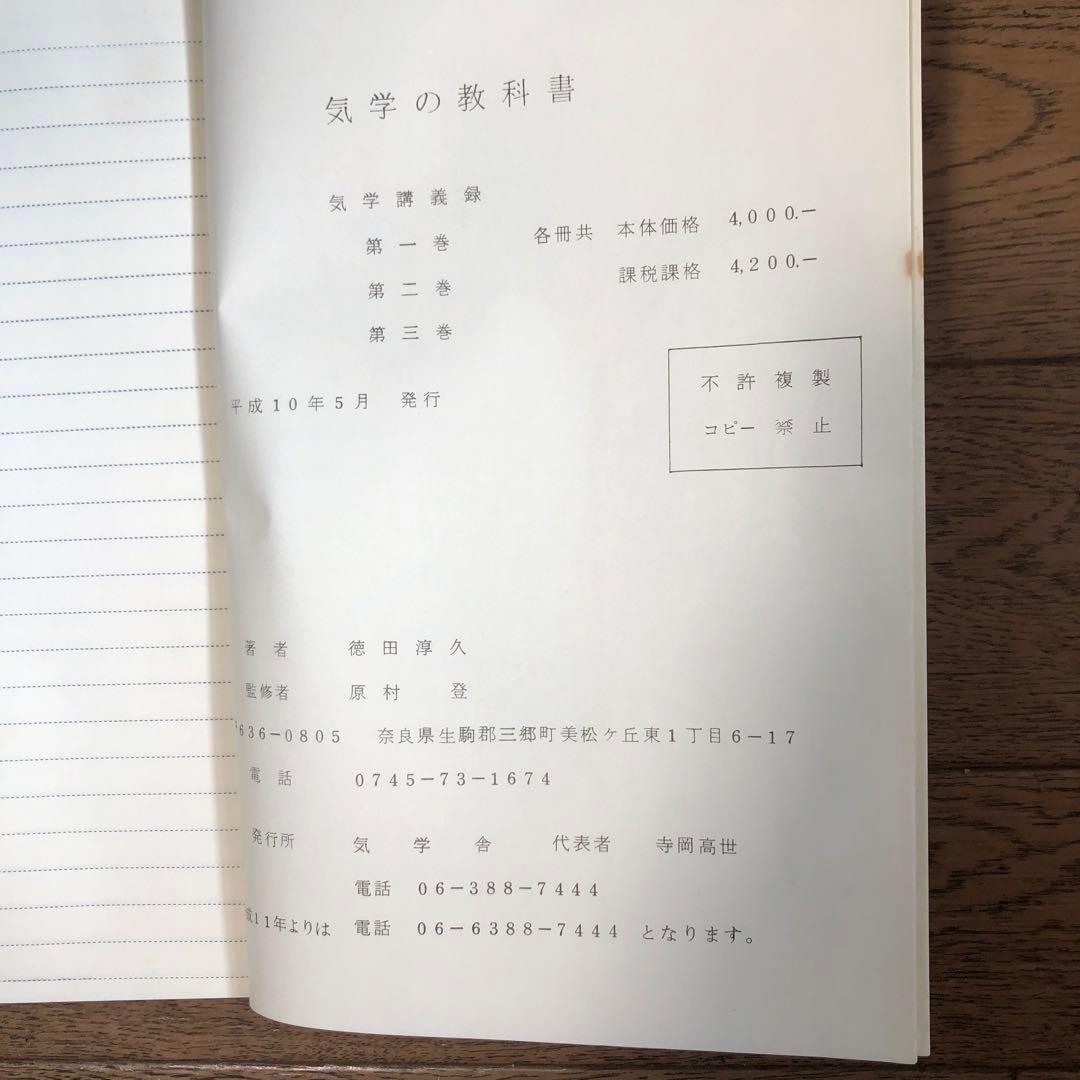 気学の教科書
気学講義録
第一巻
第二巻
第三巻
各冊共 本体価格 4,000.—
課税課格 4,200.—
不許複製
コピー禁止
平成10年5月 発行
著者 徳田淳久
監修者 原村 登
〒636-0805 奈良県生駒郡三郷町美松ケ丘東1丁目6-17
電話 0745-73-1674
発行所 気学舎 代表者 寺岡高世
電話 06-388-7444
成11年よりは 電話 06-6388-7444 となります。